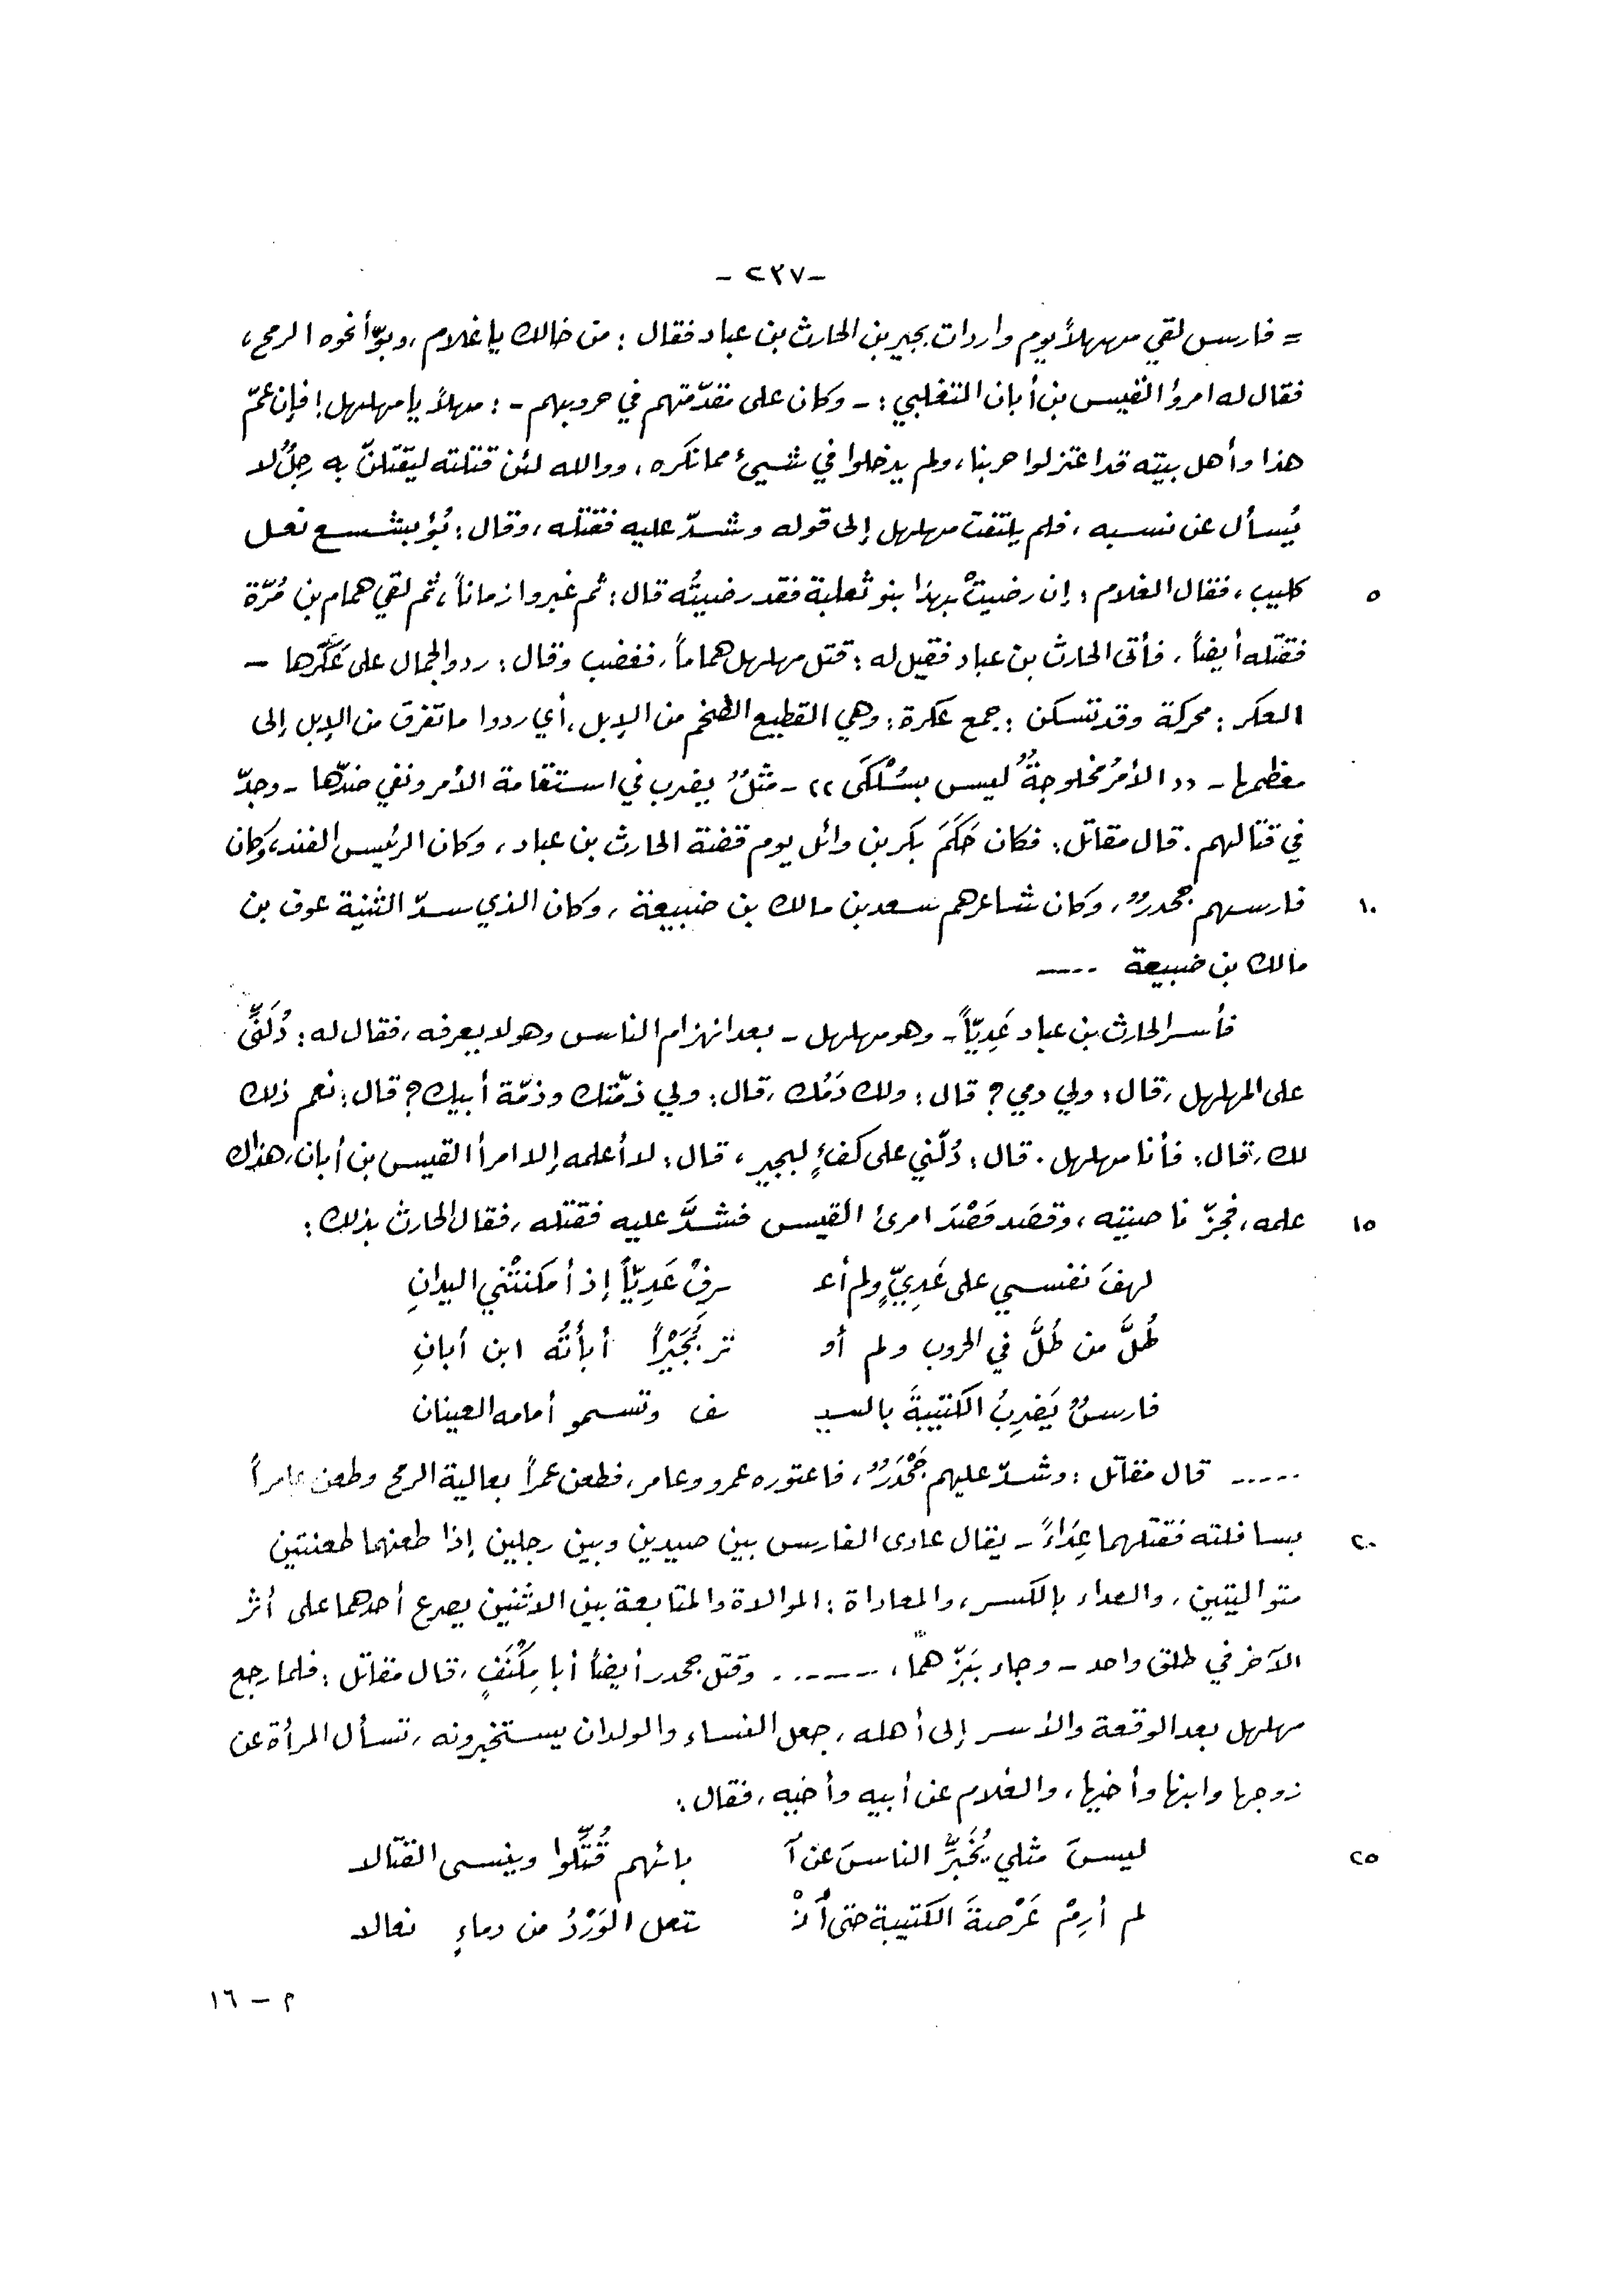 -٢٣٧-
= فارس لقي مهلهلاً يوم واردات بجير بن الحارث بن عباد فقال : من خالك يا غلام ، وبوّأ نحوه الرمح ،
فقال له امرؤ القيس بن أبان التغلبي : - وكان على مقدّمتهم في حروبهم - : مهلاً يا مهلهل ! فإن عمّ
هذا وأهل بيته قد اعتزلوا حربنا ، ولم يدخلوا في شيئ مما نكره ، ووالله لئن قتلته ليقتلنّ به رجلٌ لا
يُسأل عن نسبه ، فلم يلتفت مهلهل إلى قوله وشدّ عليه فقتله ، وقال : بُؤ بشسع نعل
٥ كليب ، فقال الغلام : إن رضيتْ بهذا بنو ثعلبة فقد رضيتُه قال : ثم غبروا زماناً ، ثم لقي همام بن مُرّة
فقتله أيضاً ، فأتى الحارث بن عباد فقيل له : قتل مهلهل هماماً ، فغضب وقال : ردوا الجمال على عَكَرها -
العكر : محركة وقد تسكن : جمع عكرة : وهي القطيع الضخم من الإبل ، أي ردوا ما تفرق من الإبل إلى
معظمها - «الأمرُ مخلوجةٌ ليس بسُلْكَى» - مثلٌ يضرب في استقامة الأمر ونفي ضدّها - وجدّ
في قتالهم . قال مقاتل : فكان حَكَمَ بكر بن وائل يوم قضة الحارث بن عباد ، وكان الرئيس الفند ، وكان
١٠ فارسهم جحدرٌ ، وكان شاعرهم سعد بن مالك بن ضبيعة ، وكان الذي سدّ الثنية عوف بن
مالك بن ضبيعة .....
فأسر الحارث بن عباد عَدِيّاً - وهو مهلهل - بعد انهزام الناس وهو لا يعرفه ، فقال له : دُلَنِّي
على المهلهل ، قال : ولي دمي ؟ قال : ولك دَمُك ، قال : ولي ذمّتك وذمّة أبيك ؟ قال : نعم ذلك
لك ، قال : فأنا مهلهل . قال : دُلّني على كفءٍ لبجير ، قال : لا أعلمه إلا امرأ القيس بن أبان ، هذاك
١٥ علمه ، فجزّ ناصيته ، وقصَد قَصْدَ امرئ القيس فشدَّ عليه فقتله ، فقال الحارث بذلك :
لهفَ نفسي على عَدِيٍّ ولم أعـ رِفْ عَدِيّاً إذ أمكنتْني اليدانِ
طُلَّ من طُلَّ في الحروب ولم أو تر بُجَيْراً أبأتُه ابن أبانِ
فارسٌ يَضرِبُ الكتيبةَ بالسيـ ـف وتسمو أمامه العينان
..... قال مقاتل : وشدّ عليهم جَحْدَرٌ ، فاعتوره عمرو وعامر ، فطعن عمراً بعالية الرمح وطعن عامراً
٢٠ بسافلته فقتلهما عِدَاءً - يقال عادى الفارس بين صيدين وبين رجلين إذا طعنهما طعنتين
متواليتين ، والعداء بالكسر ، والمعاداة : الموالاة والمتابعة بين الاثنين يصرع أحدهما على أثر
الآخر في طلق واحد - وجاء ببَزّهما ، ...... وقتل جحدر أيضاً أبا مِكْنَفٍ ، قال مقاتل : فلما رجع
مهلهل بعد الوقعة والأسر إلى أهله ، جعل النساء والولدان يستخبرونه ، تسأل المرأة عن
زوجها وابنها وأخيها ، والغلام عن أبيه وأخيه ، فقال :
٢٥ ليسَ مثلي يُخَبِّرُ الناسَ عن آ بائهم قُتِّلوا وينسى القتالا
لم أرِمْ عَرْصةَ الكتيبة حتى أنْـ ـتعل الوَرْدُ من دماءٍ نعالا
م - ١٦